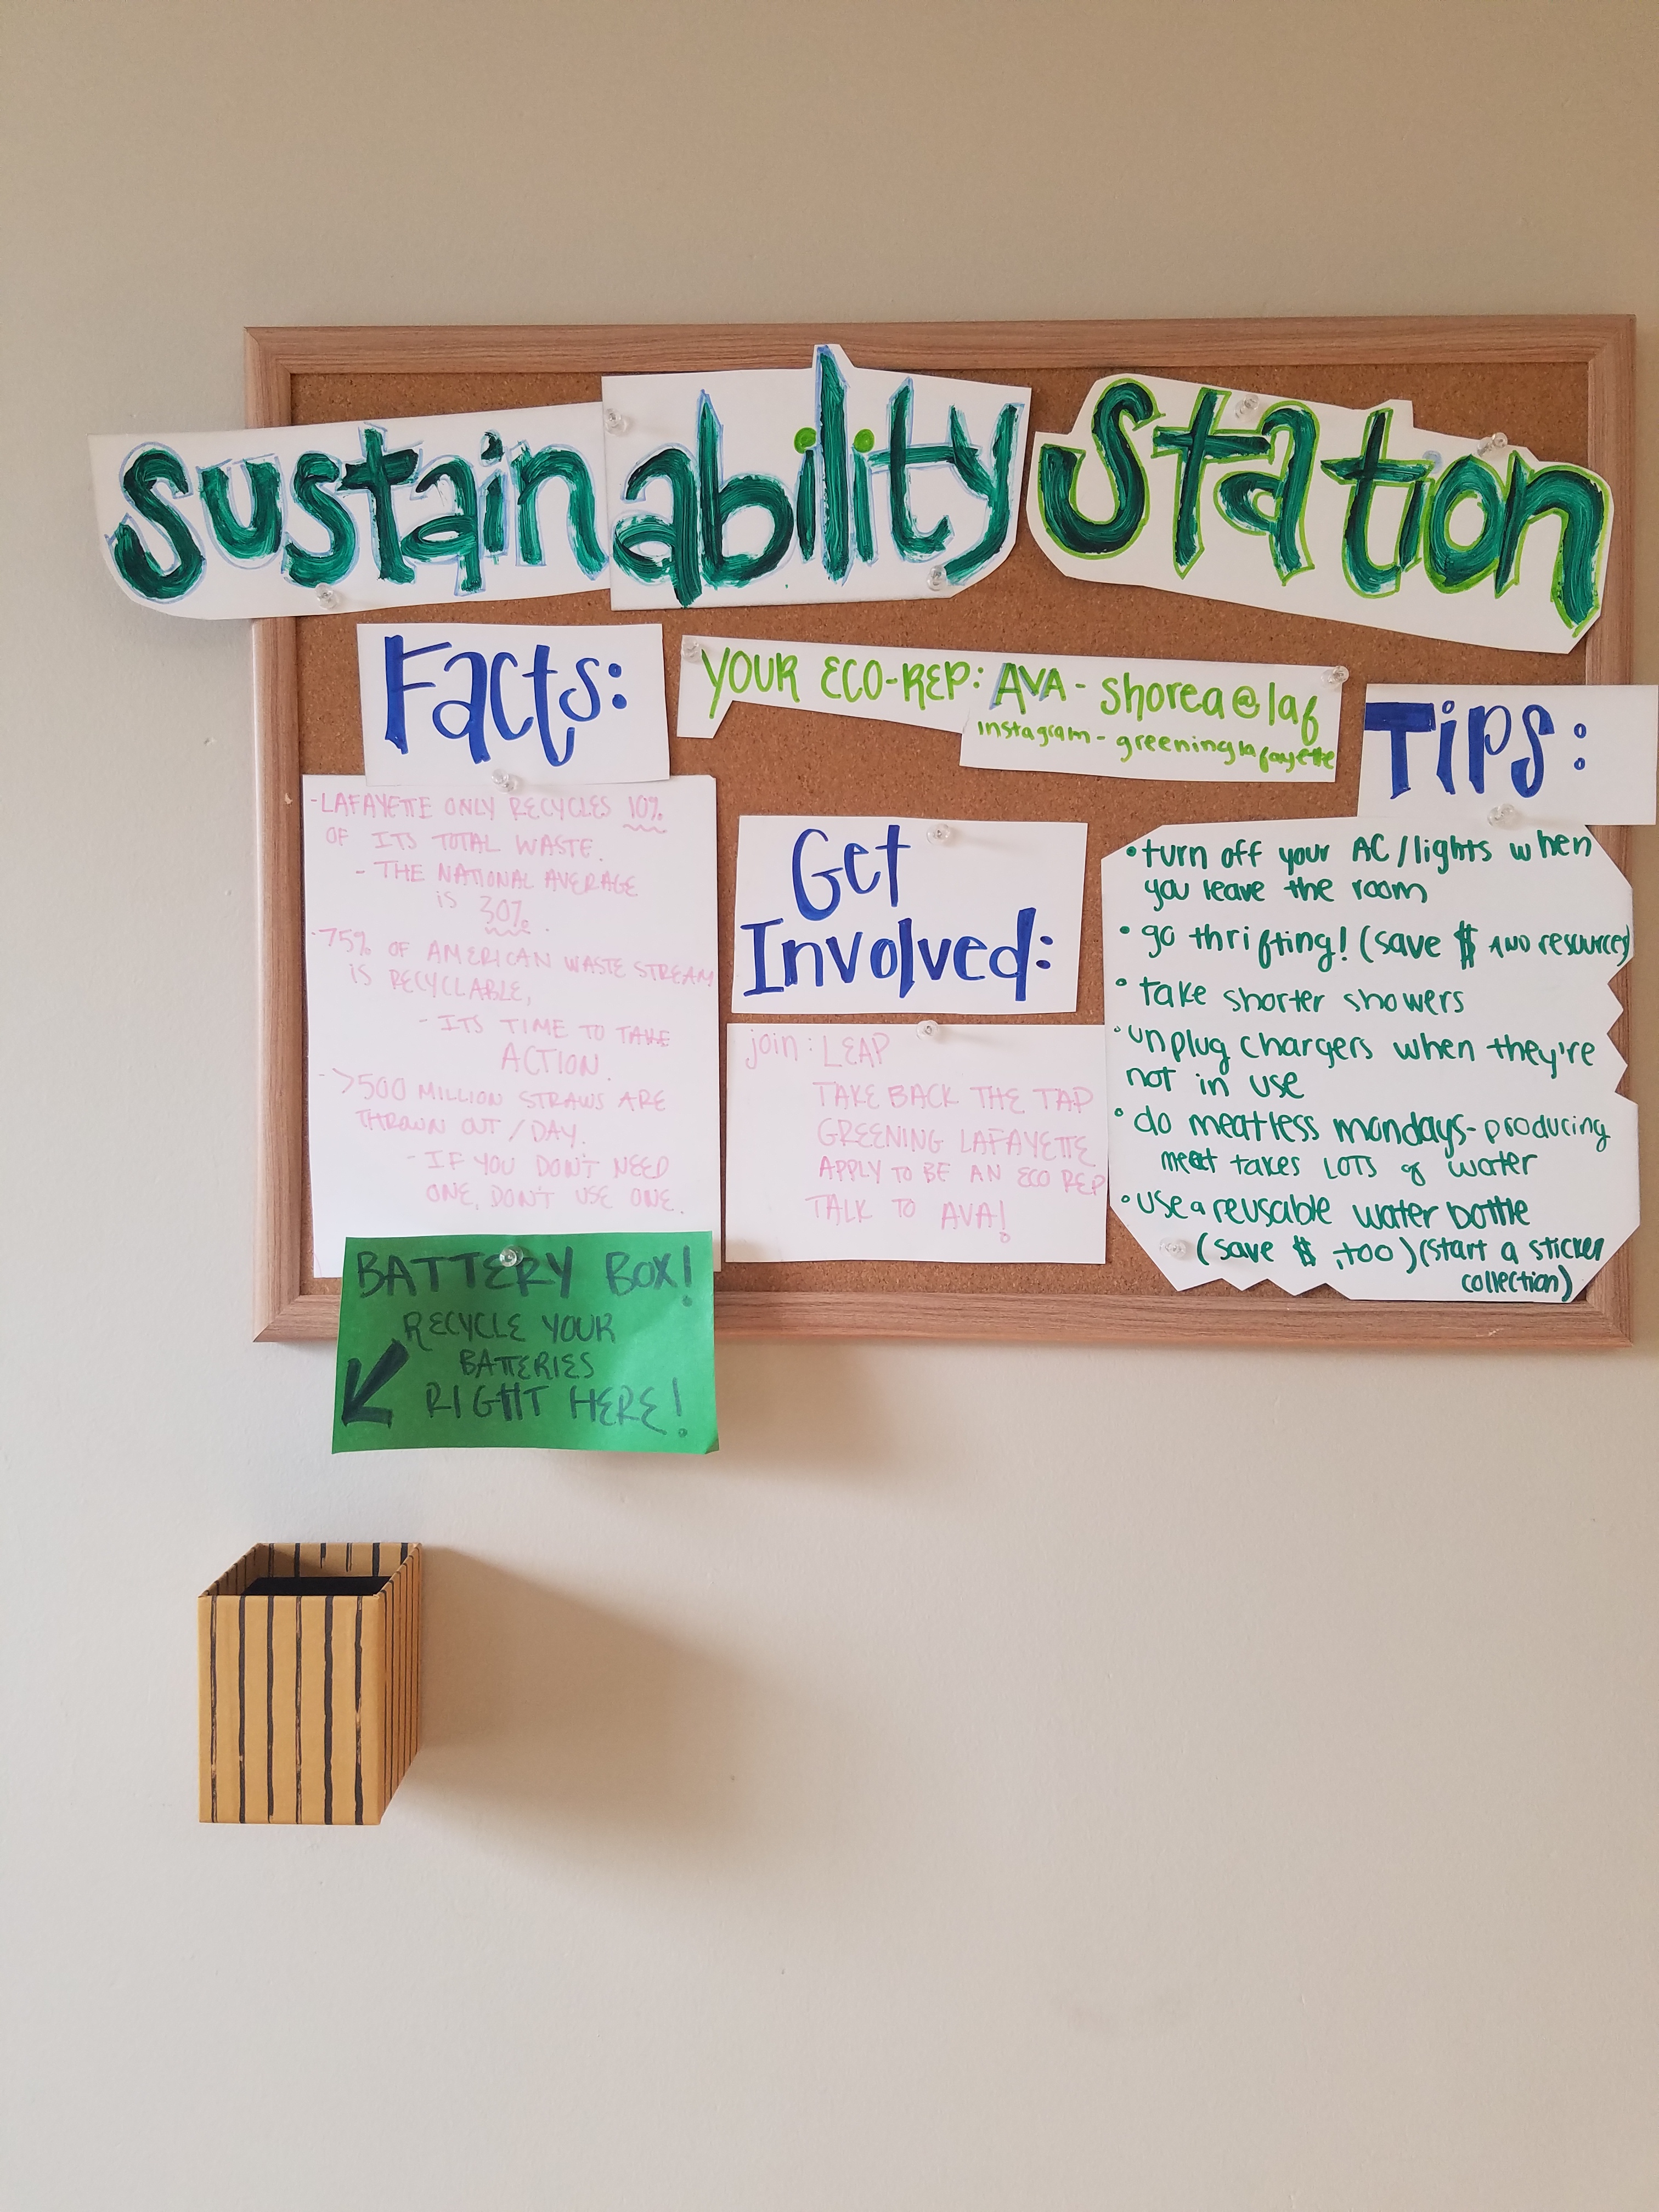 Sustainability Station
Facts:
-LAFAYETTE ONLY RECYCLES 10%
OF ITS TOTAL WASTE.
- THE NATIONAL AVERAGE
is 30%.
-75% OF AMERICAN WASTE STREAM
IS RECYCLABLE,
- ITS TIME TO TAKE
ACTION.
- >500 MILLION STRAWS ARE
THROWN OUT / DAY.
- IF YOU DON'T NEED
ONE, DON'T USE ONE.
BATTERY BOX!
RECYCLE YOUR
BATTERIES
RIGHT HERE!
YOUR ECO-REP: AVA - shorea@laf
instagram - greeninglafayette
Get
Involved:
join: LEAP
TAKE BACK THE TAP
GREENING LAFAYETTE
APPLY TO BE AN ECO REP
TALK TO AVA!
Tips:
• turn off your AC/lights when
you leave the room
• go thrifting! (save $ AND resources)
• take shorter showers
• unplug chargers when they're
not in use
• do meatless mondays- producing
meat takes LOTS of water
• use a reusable water bottle
(save $, too) (start a sticker
collection)